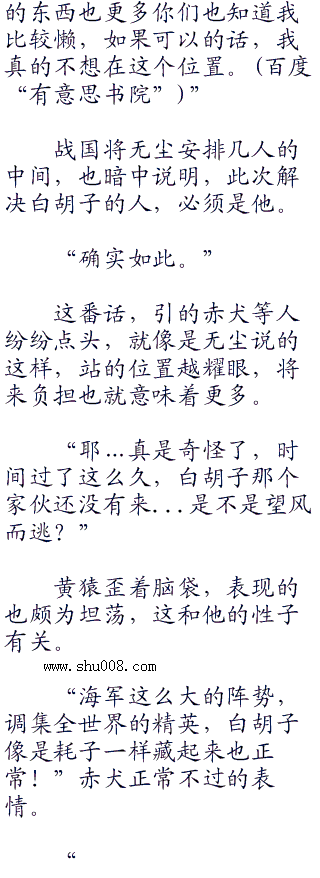 的东西也更多你们也知道我
比较懒，如果可以的话，我
真的不想在这个位置。(百度
“有意思书院”)”
战国将无尘安排几人的
中间，也暗中说明，此次解
决白胡子的人，必须是他。
“确实如此。”
这番话，引的赤犬等人
纷纷点头，就像是无尘说的
这样，站的位置越耀眼，将
来负担也就意味着更多。
“耶...真是奇怪了，时
间过了这么久，白胡子那个
家伙还没有来...是不是望风
而逃？”
黄猿歪着脑袋，表现的
也颇为坦荡，这和他的性子
有关。
www.shu008.com
“海军这么大的阵势，
调集全世界的精英，白胡子
像是耗子一样藏起来也正
常！”赤犬正常不过的表
情。
“